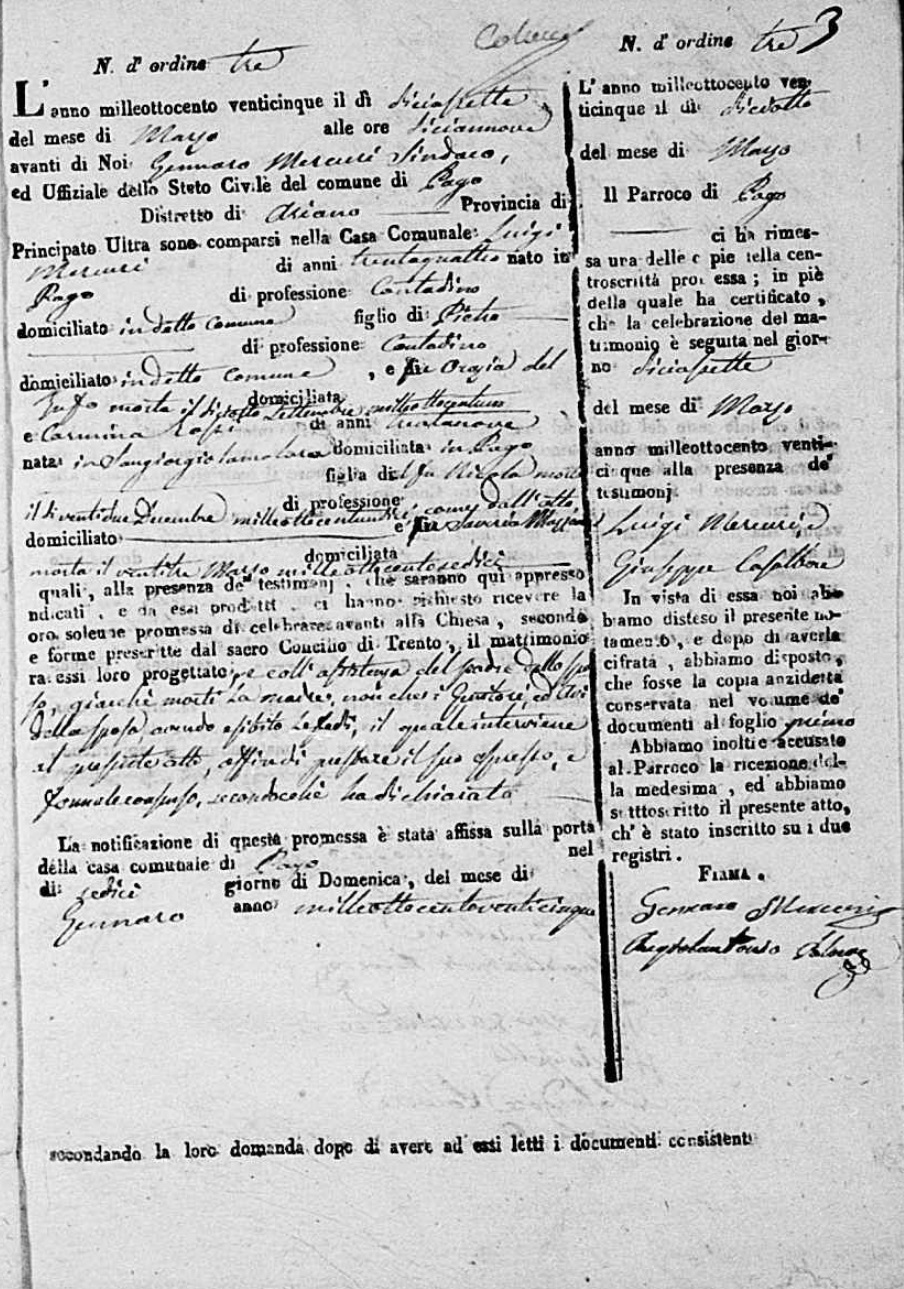 N. d' ordine tre
L' anno milleottocento venticinque il dì diciassette
del mese di Marzo alle ore diciannove
avanti di Noi Gennaro Mercuri Sindaco,
ed Uffiziale dello Stato Civile del comune di Pago
Distretto di Ariano Provincia di
Principato Ultra sono comparsi nella Casa Comunale Luigi
Mercuri di anni trentaquattro nato in
Pago di professione Contadino
domiciliato in detto Comune figlio di Pietro
di professione Contadino
domiciliato in detto Comune, e fu Orazia del
Zuffo morta il dì Settembre milleottocentuno
domiciliata
e Carmina di anni trentanove
nata in Sangiorgio lamolara domiciliata in Pago
figlia del fu Nicola morto
il dì ventidue Dicembre come dall'atto
di professione
domiciliato e fu Saveria
morta il ventitre Marzo milleottocentosedici
domiciliata
quali, alla presenza de' testimonj, che saranno qui appresso
ndicati, e da essi prodotti, ci hanno richiesto ricevere la
oro solenne promessa di celebrare avanti alla Chiesa, secondo
e forme prescritte dal sacro Concilio di Trento, il matrimonio
ra essi loro progettato, e coll' assistenza del padre dello spo
so, giacchè morti la madre, non che i Genitori, ed Avi
della sposa avendo esibito le fedi, il quale interviene
al presente atto, affin di prestare il suo espresso, e
formale consenso, secondochè ha dichiarato
La notificazione di questa promessa è stata affissa sulla porta
della casa comunale di Pago nel
dì sedici giorno di Domenica, del mese di
Gennaro anno milleottocentoventicinque
N. d' ordine tre 3
L' anno milleottocento ven-
ticinque il dì dieciotto
del mese di Marzo
Il Parroco di Pago
ci ha rimes-
sa una delle copie della con-
troscritta promessa; in piè
della quale ha certificato,
che la celebrazione del ma-
trimonio è seguita nel gior-
no diciassette
del mese di Marzo
anno milleottocento venti-
cinque alla presenza de'
testimonj
Luigi Mercuri, e
Giuseppe Casalbore
In vista di essa noi abb-
biamo disteso il presente no-
tamento, e dopo di averla
cifrata, abbiamo disposto,
che fosse la copia anzidetta
conservata nel volume de'
documenti al foglio primo
Abbiamo inoltre accusato
al Parroco la ricezione del-
la medesima, ed abbiamo
sotttoscritto il presente atto,
ch' è stato inscritto su i due
registri.
FIRMA.
Gennaro Mercuri
Angelantonio
secondando la loro domanda dopo di avere ad essi letti i documenti consistenti